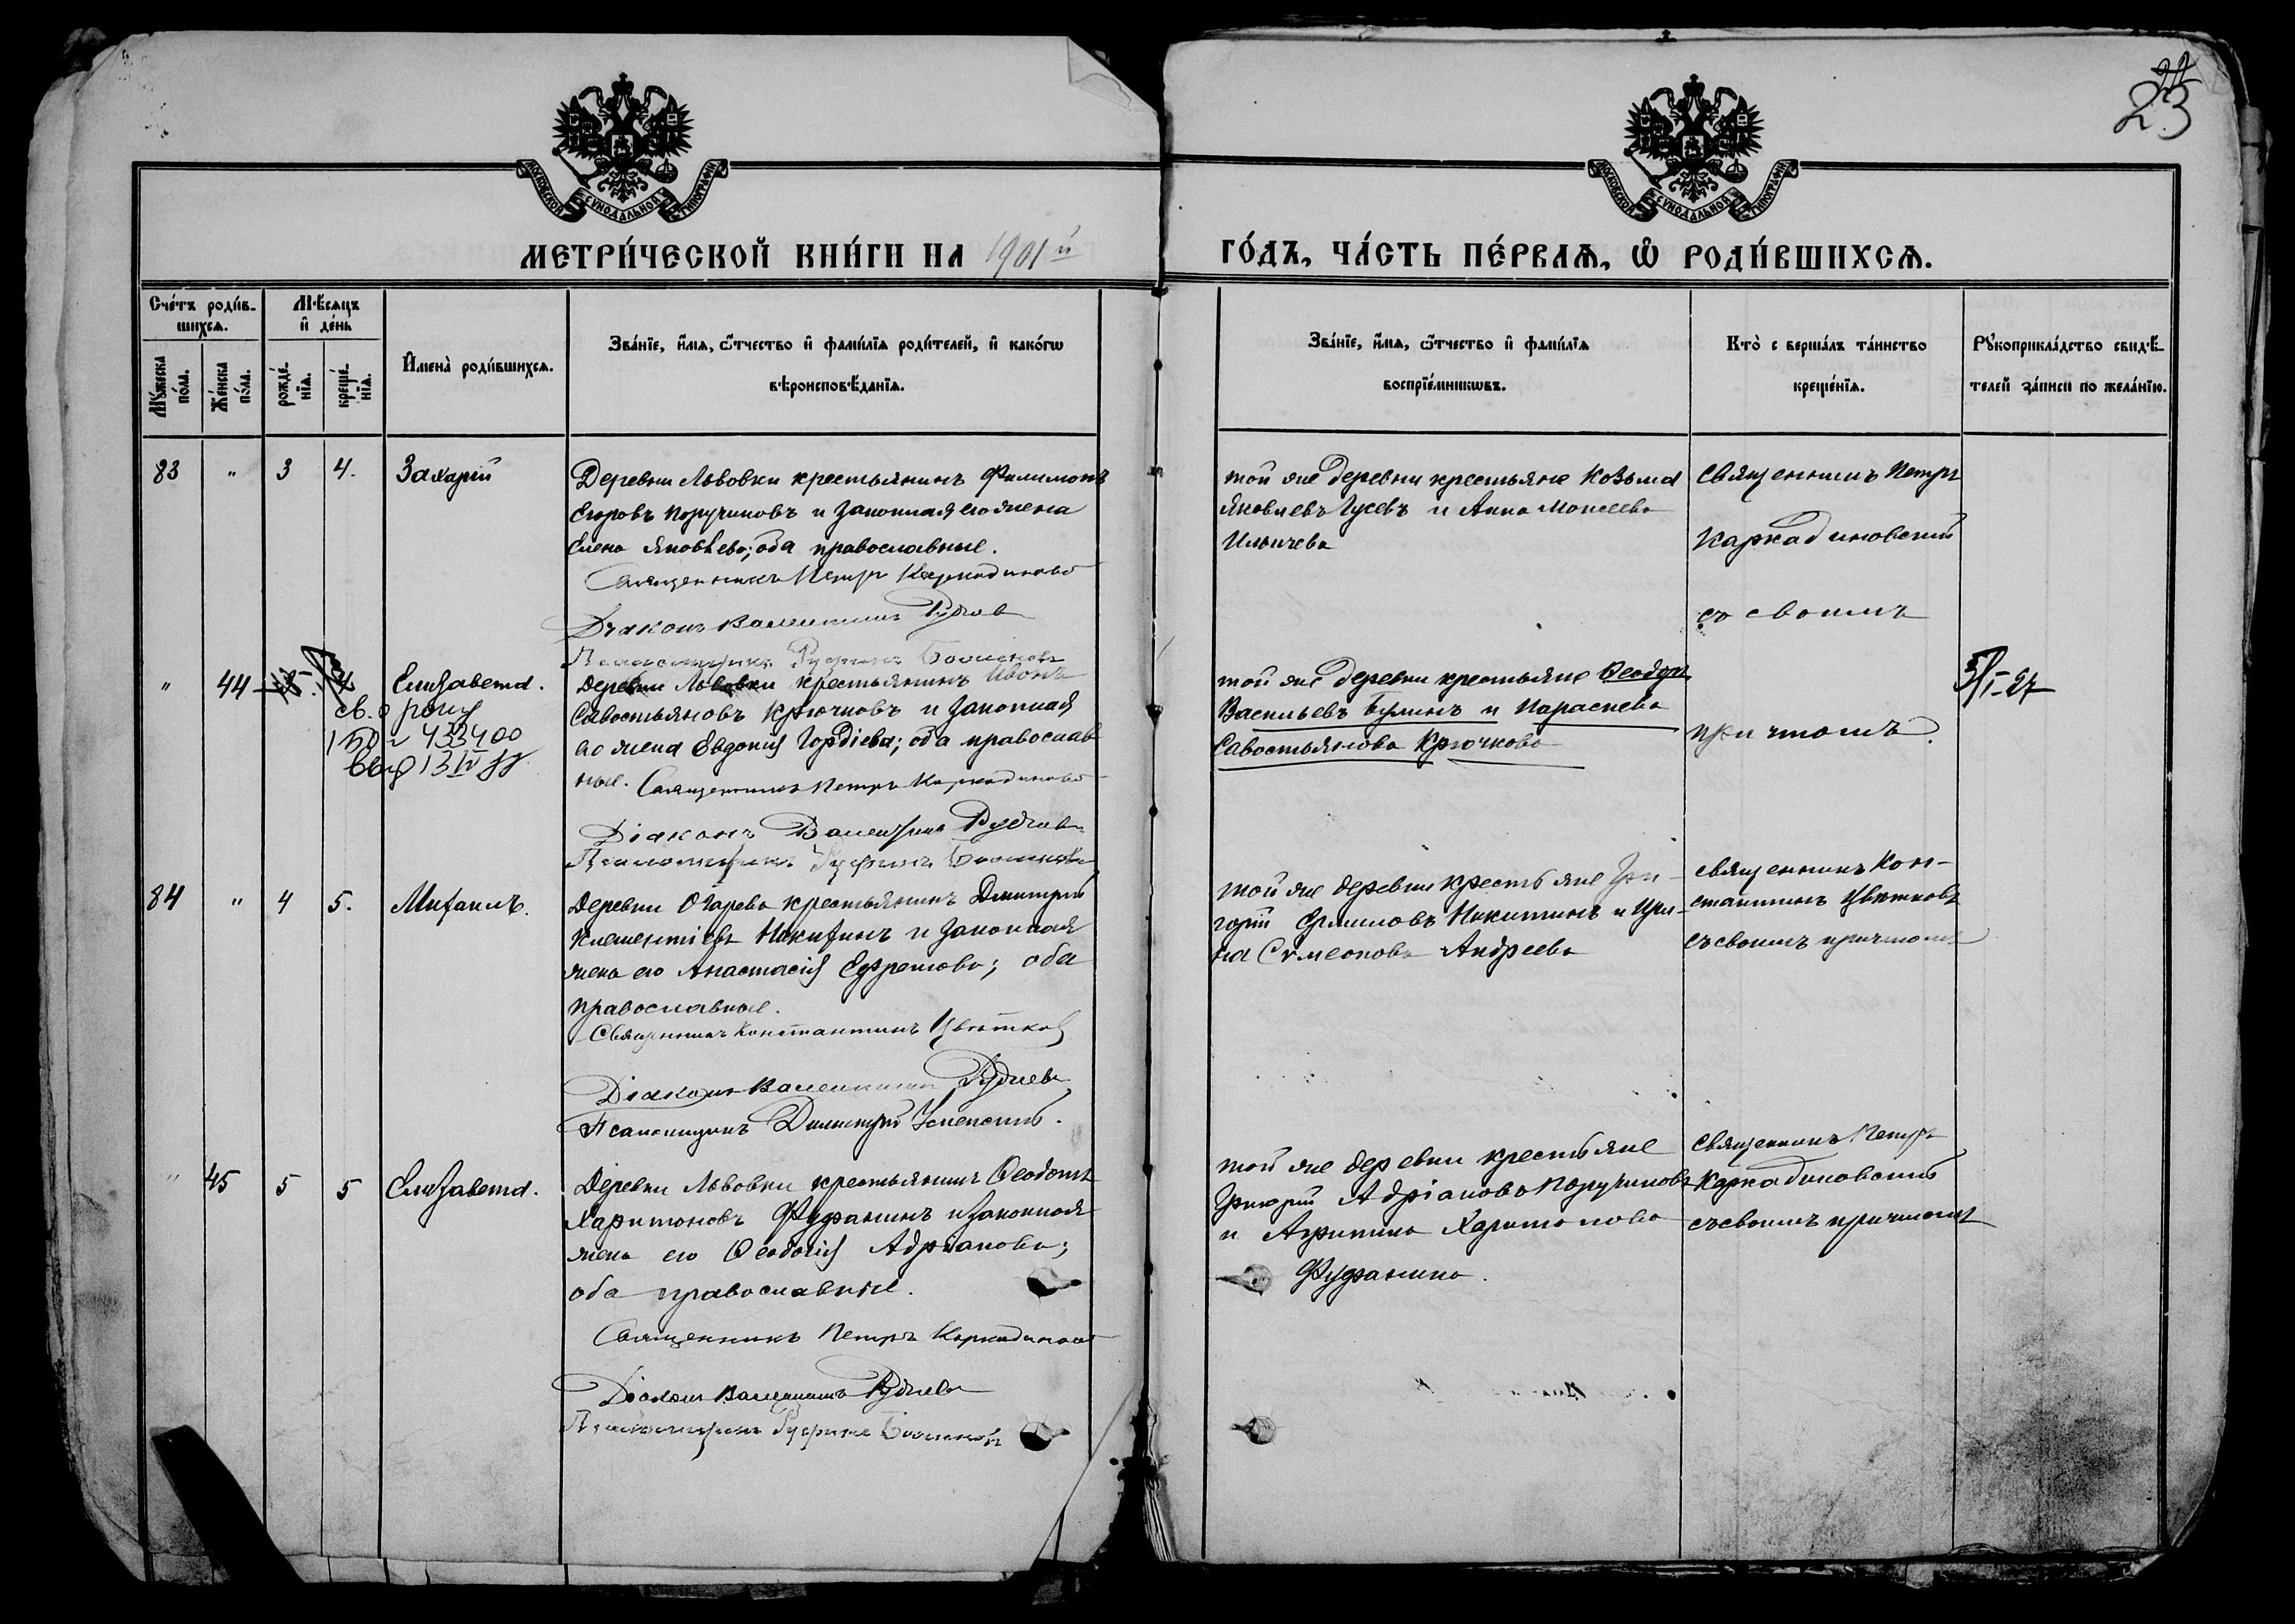 23
МОСКОВСКОЙ СУНОДАЛЬНОЙ ТИПОГРАФІИ
МОСКОВСКОЙ СУНОДАЛЬНОЙ ТИПОГРАФІИ
МЕТРИ́ЧЕСКОЙ КНИ́ГИ НА 1901й
ГО́ДЪ, ЧА́СТЬ ПЕ́РВАѦ, Ѡ҆ РОДИ́ВШИХСѦ.
Сче́тъ роди́в-
шихсѧ.
Мꙋ́жеска по́ла.
Же́нска по́ла.
Мѣ́сѧцъ и҆ де́нь
рожде́-
нїѧ.
креще́-
нїѧ.
И҆мена̀ роди́вшихсѧ.
Зва́нїе, и҆́мѧ, ѻ҆́тчество и҆ фами́лїѧ роди́телей, и҆ како́гѡ
вѣроисповѣ́данїѧ.
Зва́нїе, и҆́мѧ, ѻ҆́тчество и҆ фами́лїѧ
воспрїе́мникѡвъ.
Кто̀ соверша́лъ та́инство
креще́нїѧ.
Рꙋкоприкла́дство свидѣ́-
телей за́писи по жела́нїю.
83 " 3 4. Захарій
Деревни Львовки крестьянинъ Филимонъ
Егоровъ Поручиковъ и законная его жена
Елена Яковлева; оба православные.
Священникъ Петръ Каркадиновс
Діаконъ Валентинъ Руднев
Псаломщикъ Руфинъ
той же деревни крестьяне Козьма
Яковлевъ Гусевъ и Анна Моисеева
Ильичева
Священникъ Петръ
Каркадиновскій
со своимъ
причтомъ.
" 44 Елизавета.
св. о рожд
433400
выд 13 IV
Деревни Львовки крестьянинъ Иванъ
Савостьяновъ Крючковъ и законная
его жена Евдокія Гордіева; оба православ
ные. Священникъ Петръ Каркадиновс
Діаконъ Валентинъ Руднев
Псаломщикъ Руфинъ
той же деревни крестьяне Ѳеодоръ
Васильевъ Булинъ и Параскева
Савостьянова Крючкова
5/I-27
84 " 4 5. Михаилъ.
Деревни Огарева крестьянинъ Димитрій
Климентіевъ Никитинъ и законная
жена его Анастасія Ефремова; оба
православные.
Священникъ Константинъ Цвѣтков
Діаконъ Валентинъ Рудневъ
Псаломщикъ Димитрій Успенскій.
той же деревни крестьяне Гри-
горій Ермиловъ Никитинъ и Ири-
на Симеонова Андреева
священникъ Кон-
стантинъ Цвѣтковъ
съ своимъ причтомъ
" 45 5 5 Елизавета.
Деревни Львовки крестьянинъ Ѳеодотъ
Харитоновъ Фуфанинъ и законная
жена его Ѳеодосія Адріанова;
оба православные.
Священникъ Петръ Каркадиновс
Діаконъ Валентинъ Рудневъ
Псаломщикъ Руфинъ
той же деревни крестьяне
Григорій Адріановъ Поручиковъ
и Агрипина Харитонова
Фуфанина.
Священникъ Петръ
Каркадиновскій
съ своимъ причтомъ